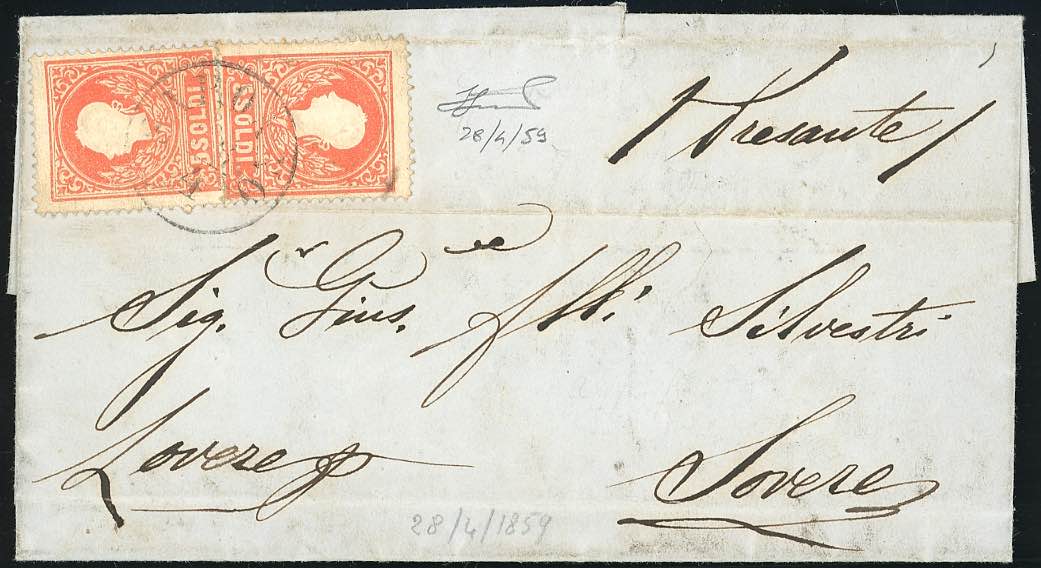 5 SOLDI
5 SOLDI
28/4/59
Pressante
Sig.r Gius.e flli. Silvestri
Lovere p
Sovere
28/4/1859